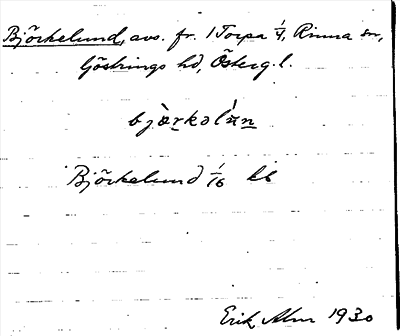 Björkelund, avs. fr. 1 Torpa 1/4, Rinna sn,
Göstrings hd, Österg. l.
Björkelund 1/16 kb
Erik Alm 1930